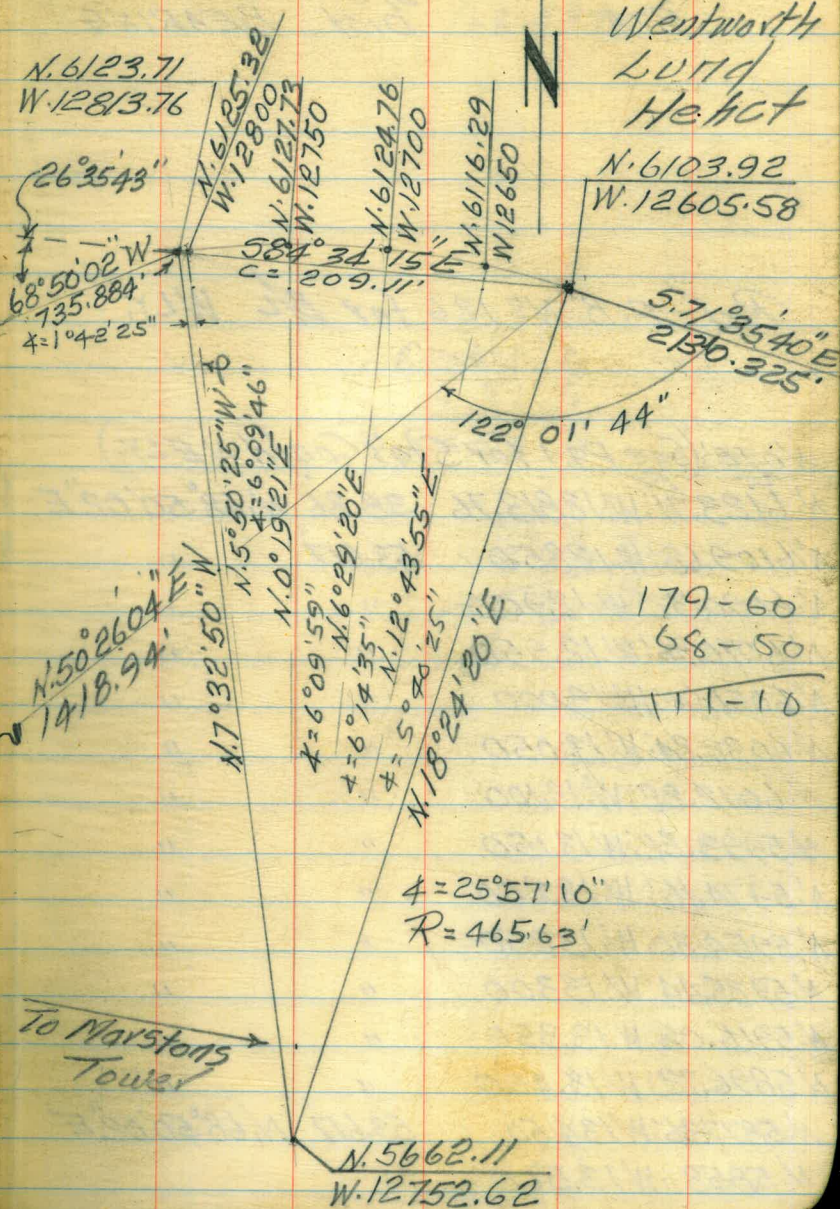 Wentworth
Lund
Hehct
N
N.6123.71
W.12813.76
N.6125.32
W.12800
N.6127.73
W.12750
N.6124.76
W.12700
N.6116.29
W12650
N.6103.92
W.12605.58
26°35'43"
68°50'02" W
735.884'
∡=1°42'25"
S84°34'15"E
C= 209.11'
S.71°35'40"E
2130.325'
122° 01' 44"
N.5°50'25"W
∡=6°09'46"
N.0°19'21"E
∡=6°09'59"
N.6°29'20"E
∡=6°14'35"
N.12°43'55"E
∡=5°40'25"
N.18°24'20"E
N.7°32'50"W
N.50°26'04"E
1418.94'
179-60
68-50
111-10
∡=25°57'10"
R=465.63'
To Marstons
Tower
N.5662.11
W.12752.62